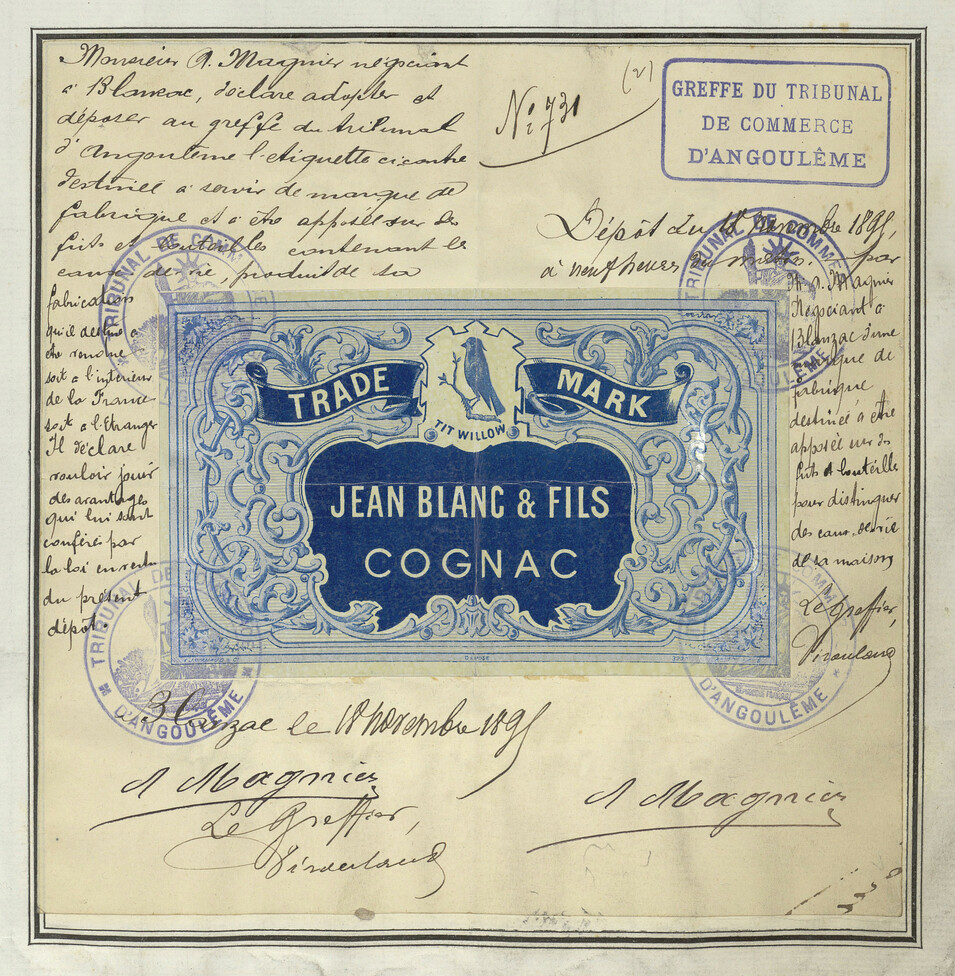 Monsieur A. Magnier négociant
à Blanzac, déclare adopter et
déposer au greffe du tribunal
d'Angoulême l'etiquette ci contre
destinée à servir de marque de
fabrique et à être apposée sur des
futs et bouteilles contenant les
eaux-de-vie, produit de sa
fabrication
qu'il destine a
être vendue
soit a l'interieur
de la France
soit a l'Etranger
Il déclare
vouloir jouir
des avantages
qui lui sont
conférés par
la loi en vertu
du présent
dépôt.
(2)
No 731
GREFFE DU TRIBUNAL
DE COMMERCE
D'ANGOULÊME
Dépôt du 18 novembre 1895,
à neuf heures du matin. par
M. A. Magnier
Négociant à
Blanzac d'une
marque de
fabrique
destinée à être
apposée sur des
futs et bouteilles
pour distinguer
des eaux-de-vie
de sa maison
Le Greffier,
TRIBUNAL DE COMMERCE
TRIBUNAL DE COMMERCE
TRADE MARK
TIT WILLOW
JEAN BLANC & FILS
COGNAC
TRIBUNAL DE
D'ANGOULÊME
COMMERCE
D'ANGOULÊME
Blanzac le 18 novembre 1895
A Magnier
Le Greffier,
A Magnier